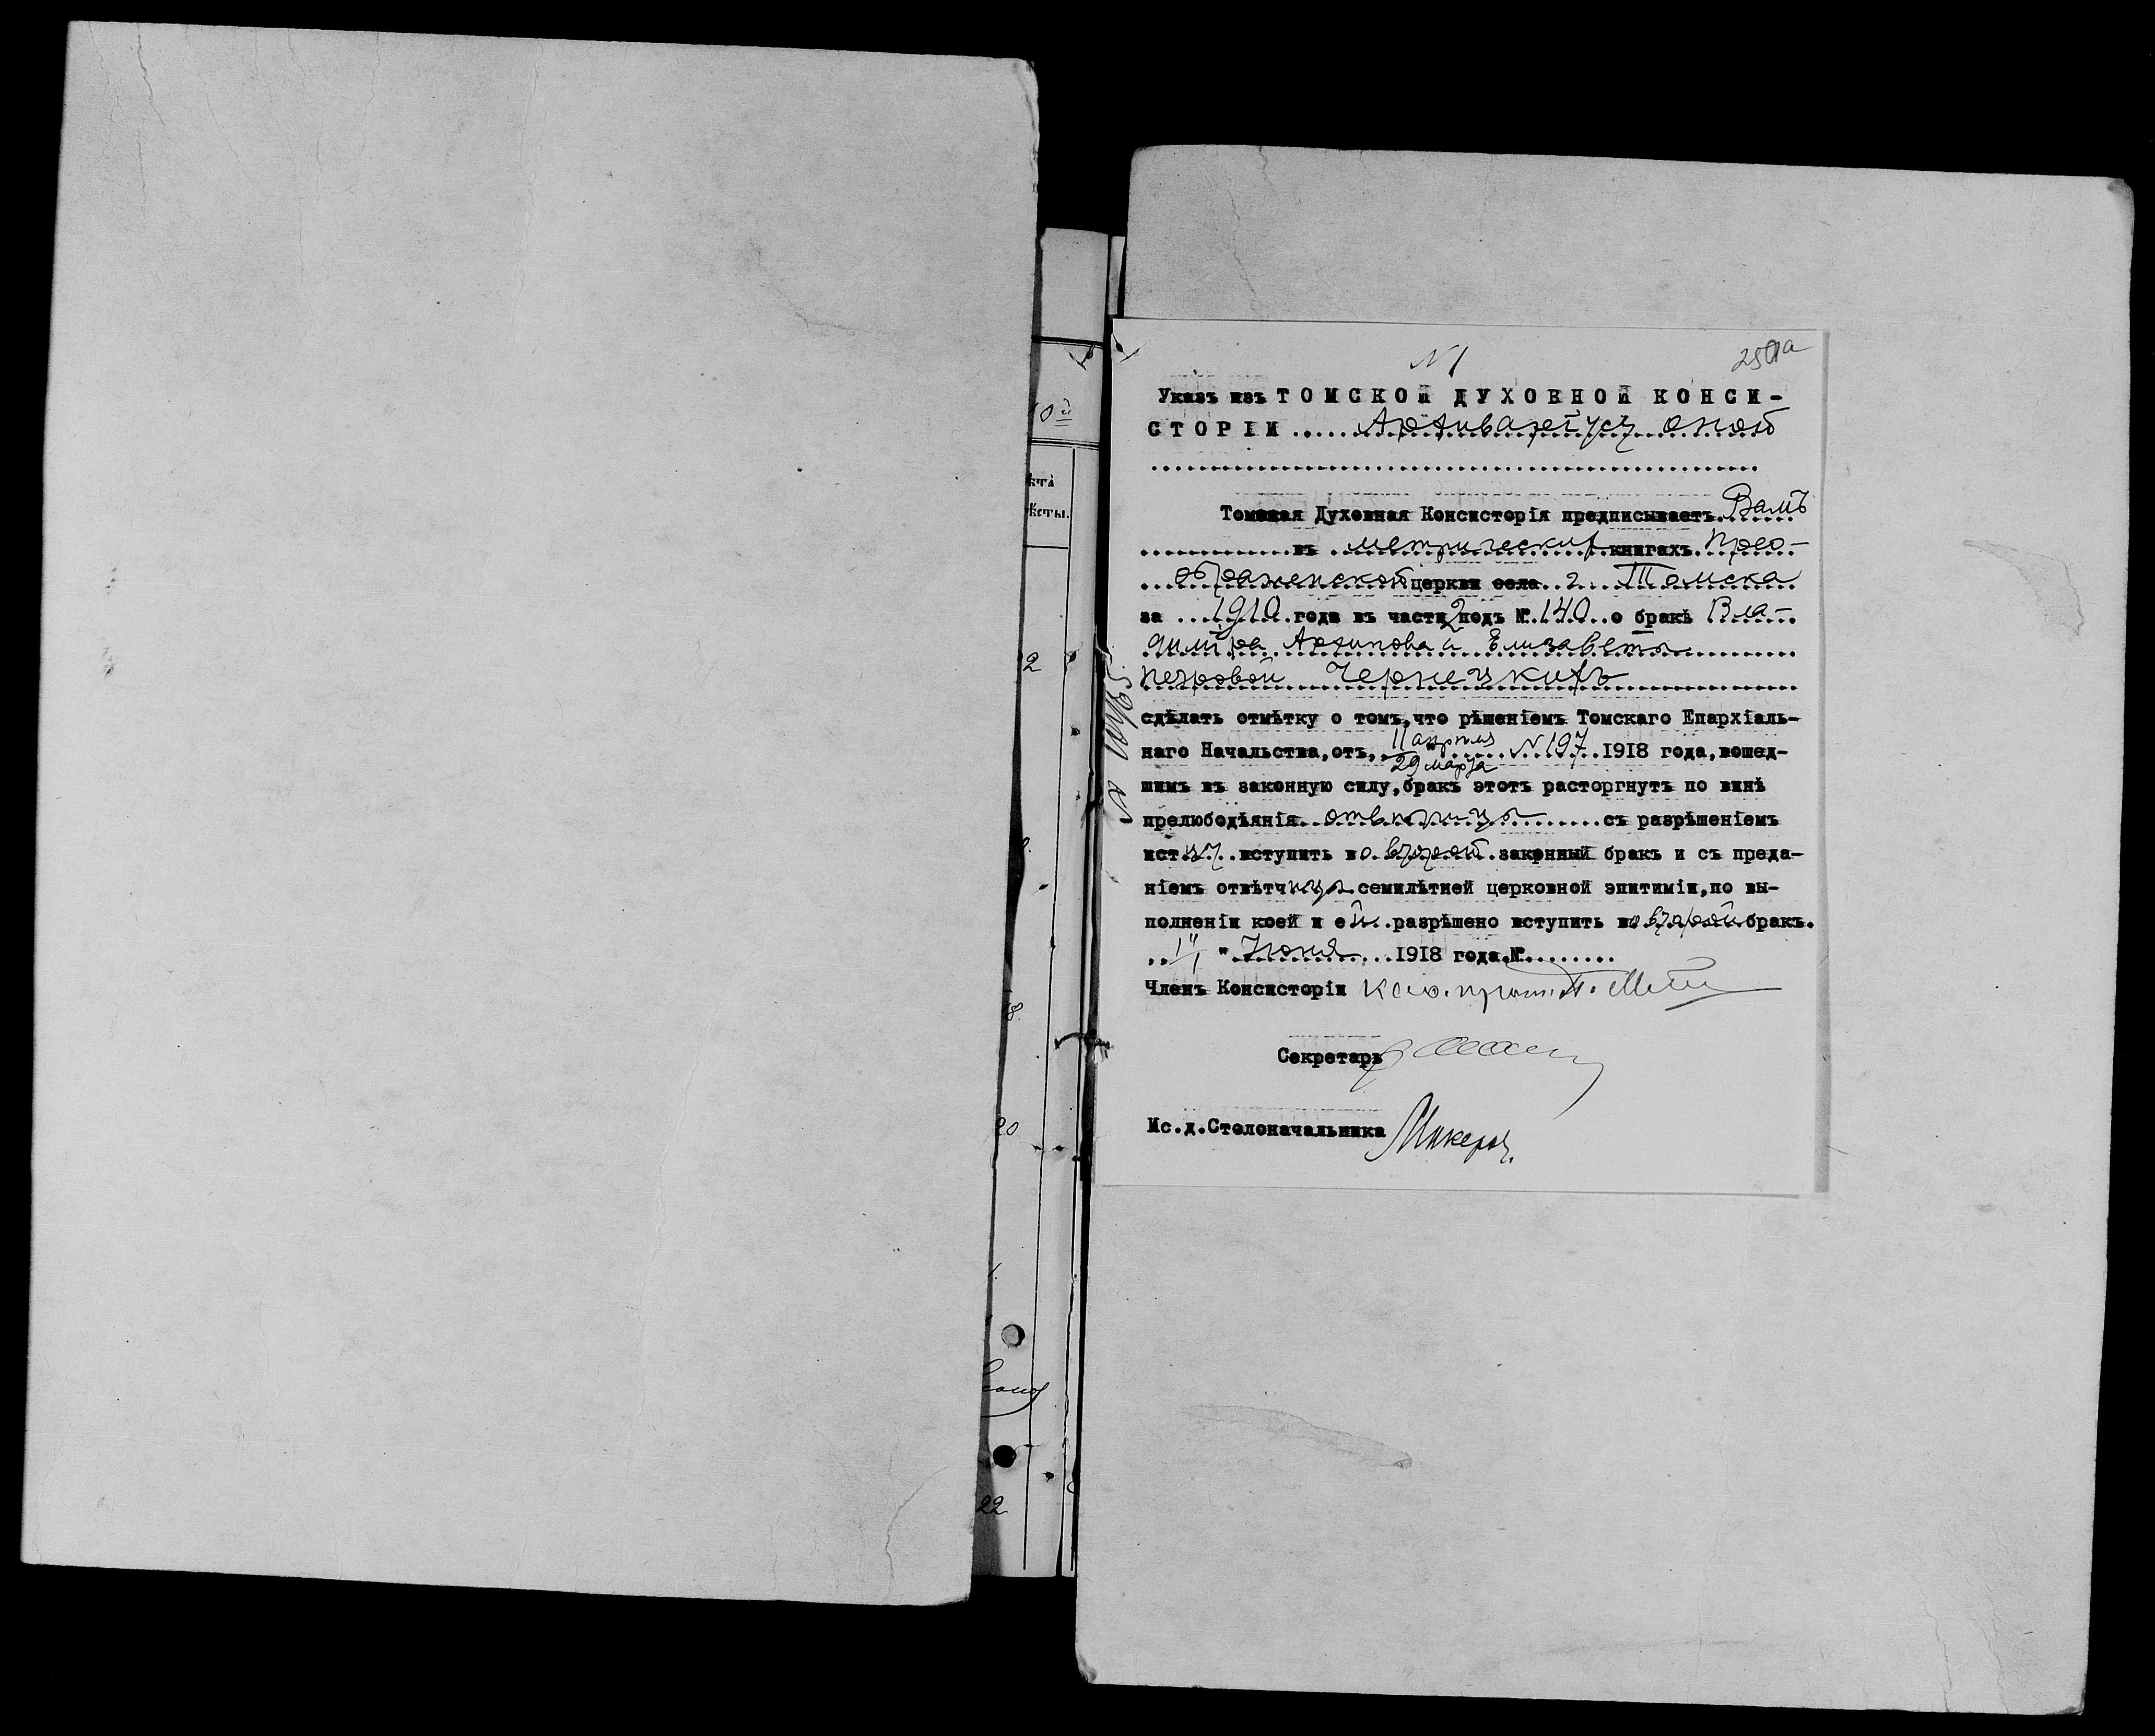 N 1
250а
Указъ изъ ТОМСКОЙ ДУХОВНОЙ КОНСИ-
СТОРІИ..... Архиваріусу оной
Томская Духовная Консисторія предписываетъ Вамъ
въ метрических книгахъ Прео-
браженской церкви села г. Томска
за 1910 года въ части 2 подъ №.140 о бракѣ Вла-
диміра Архипова и Елизаветы
Петровой Чернецкихъ
сдѣлать отмѣтку о томъ, что рѣшеніемъ Томскаго Епархіаль-
наго Начальства, отъ, 11 апрѣля / 29 марта N 197 1918 года, вошед-
шимъ въ законную силу, бракъ этотъ расторгнутъ по винѣ
прелюбодѣянія отвѣтчицы съ разрѣшеніемъ
истцу вступить во второй законный бракъ и съ преда-
ніемъ отвѣтчицы семилѣтней церковной эпитиміи, по вы-
полненіи коей и ей разрѣшено вступить во второй бракъ.
Іюня 1918 года. №
Членъ Консисторіи
Секретарь
Ис.д.Столоначальника
10й
кта
2
8.
20
22